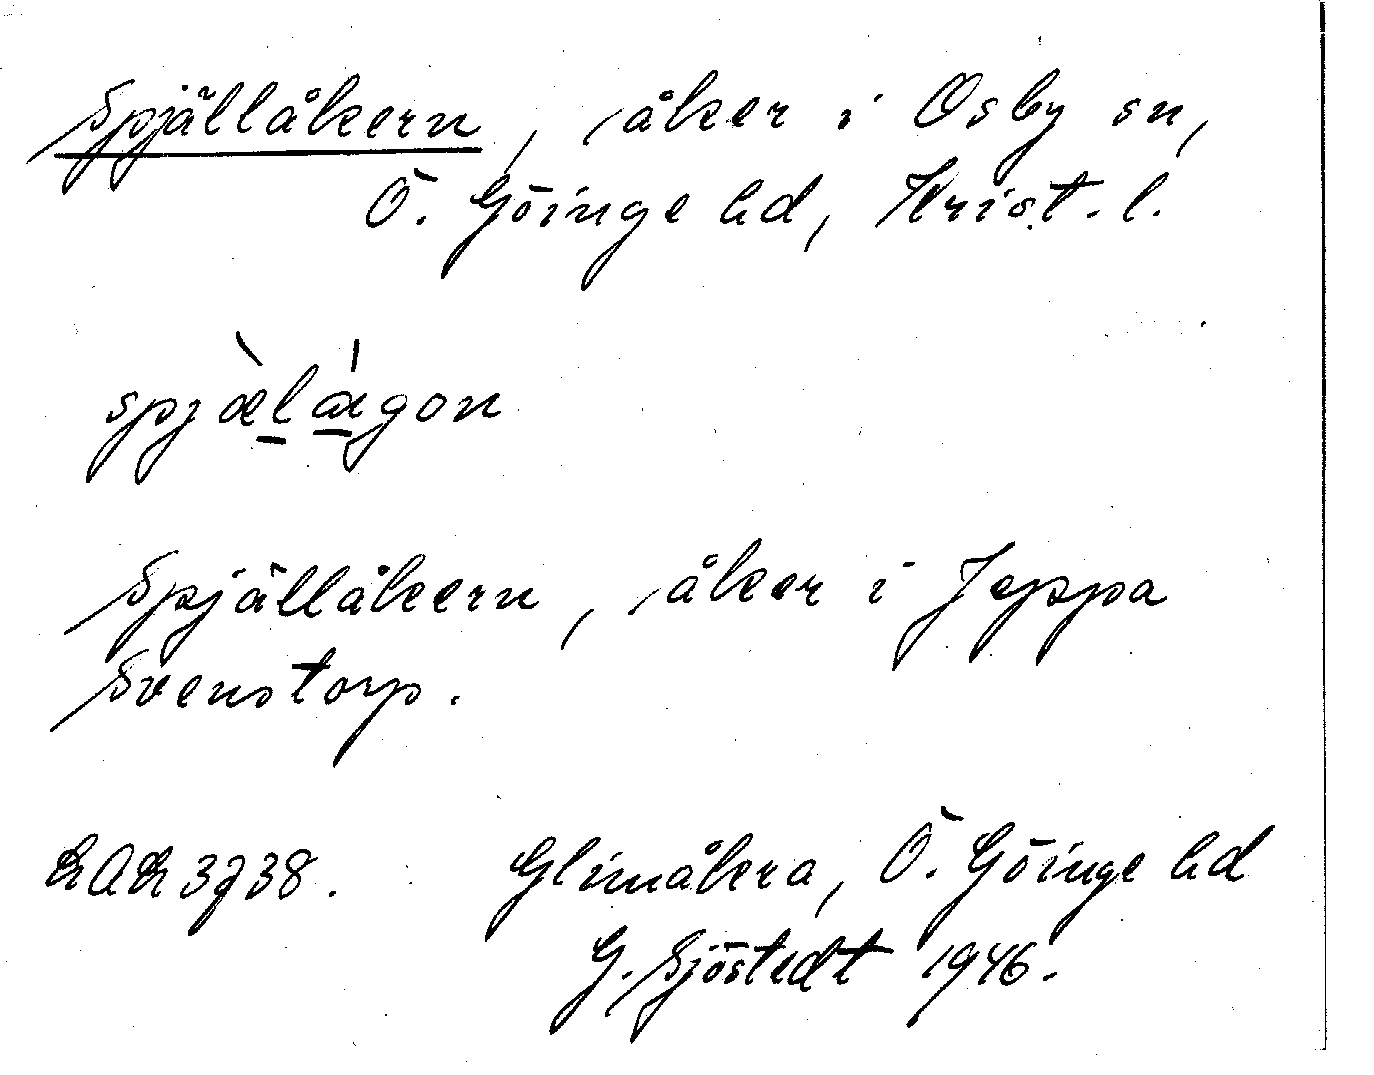 Spjällåkern, åker i Osby sn,
Ö. Göinge hd, Krist. l.
spjæ̀lágon
Spjällåkern, åker i Jeppa
Svenstorp.
Glimåkra, Ö. Göinge hd
G. Sjöstedt 1946.